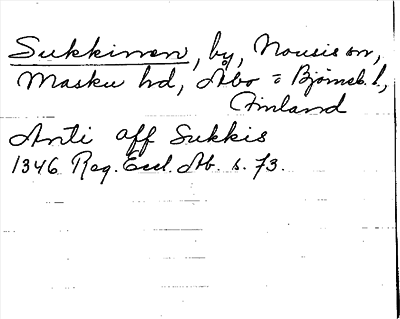 Sukkinen, by, Nousis sn,
Masku hd, Åbo = Björneb. l.,
Finland
Anti aff Sukkis
1346 Reg. Eccl. Ab. s. 73.